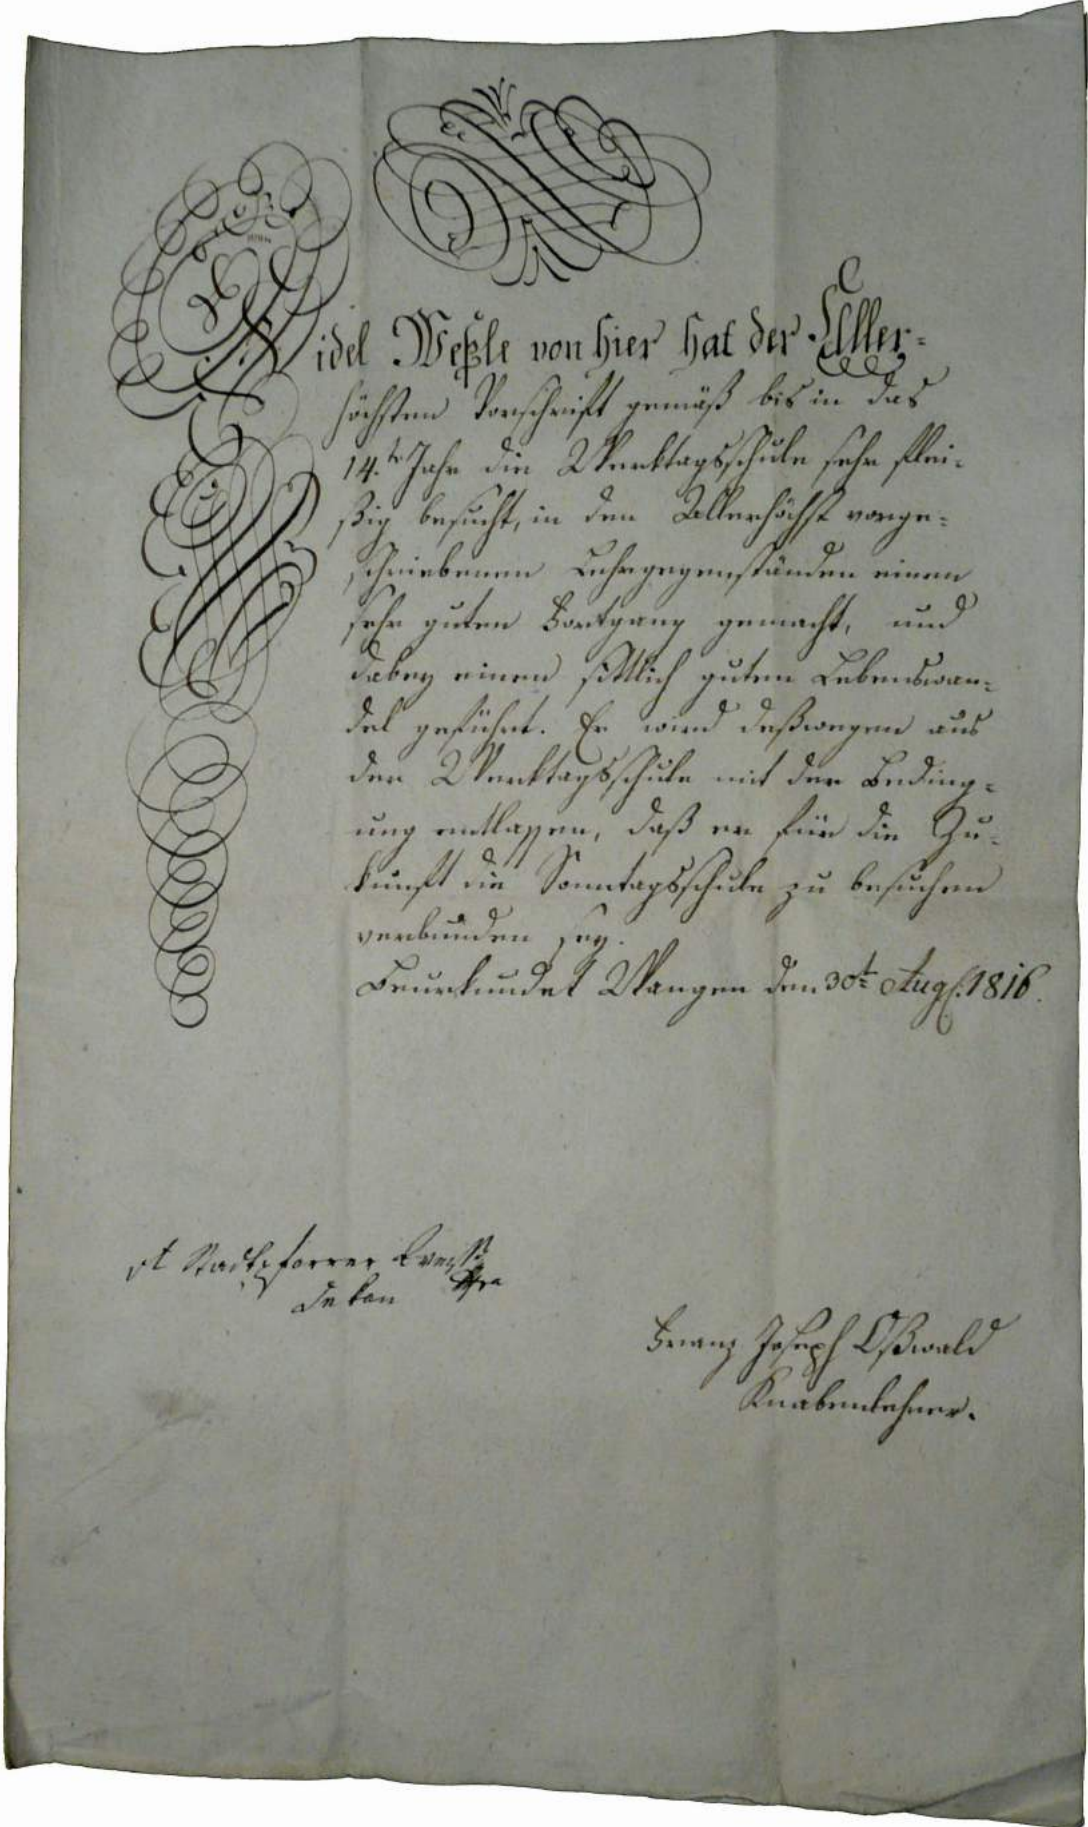 Fidel Weßle von hier hat der Aller-
höchsten Vorschrift gemäß bis in das
14.te Jahr die Werktagsschule sehr flei-
ßig besucht, in den Allerhöchst vorge-
schriebenen Lehrgegenständen einen
sehr guten Fortgang gemacht, und
dabey einen sittlich guten Lebenswan-
del geführt. Er wird deßwegen aus
der Werktagsschule mit der Beding-
ung entlassen, daß er für die Zu-
kunft die Sonntagsschule zu besuchen
verbunden sey.
Beurkundet Wangen den 30t. Aug. 1816.
Stadtpfarrer
Dekan
Franz Joseph Oßwald
Knabenlehrer.